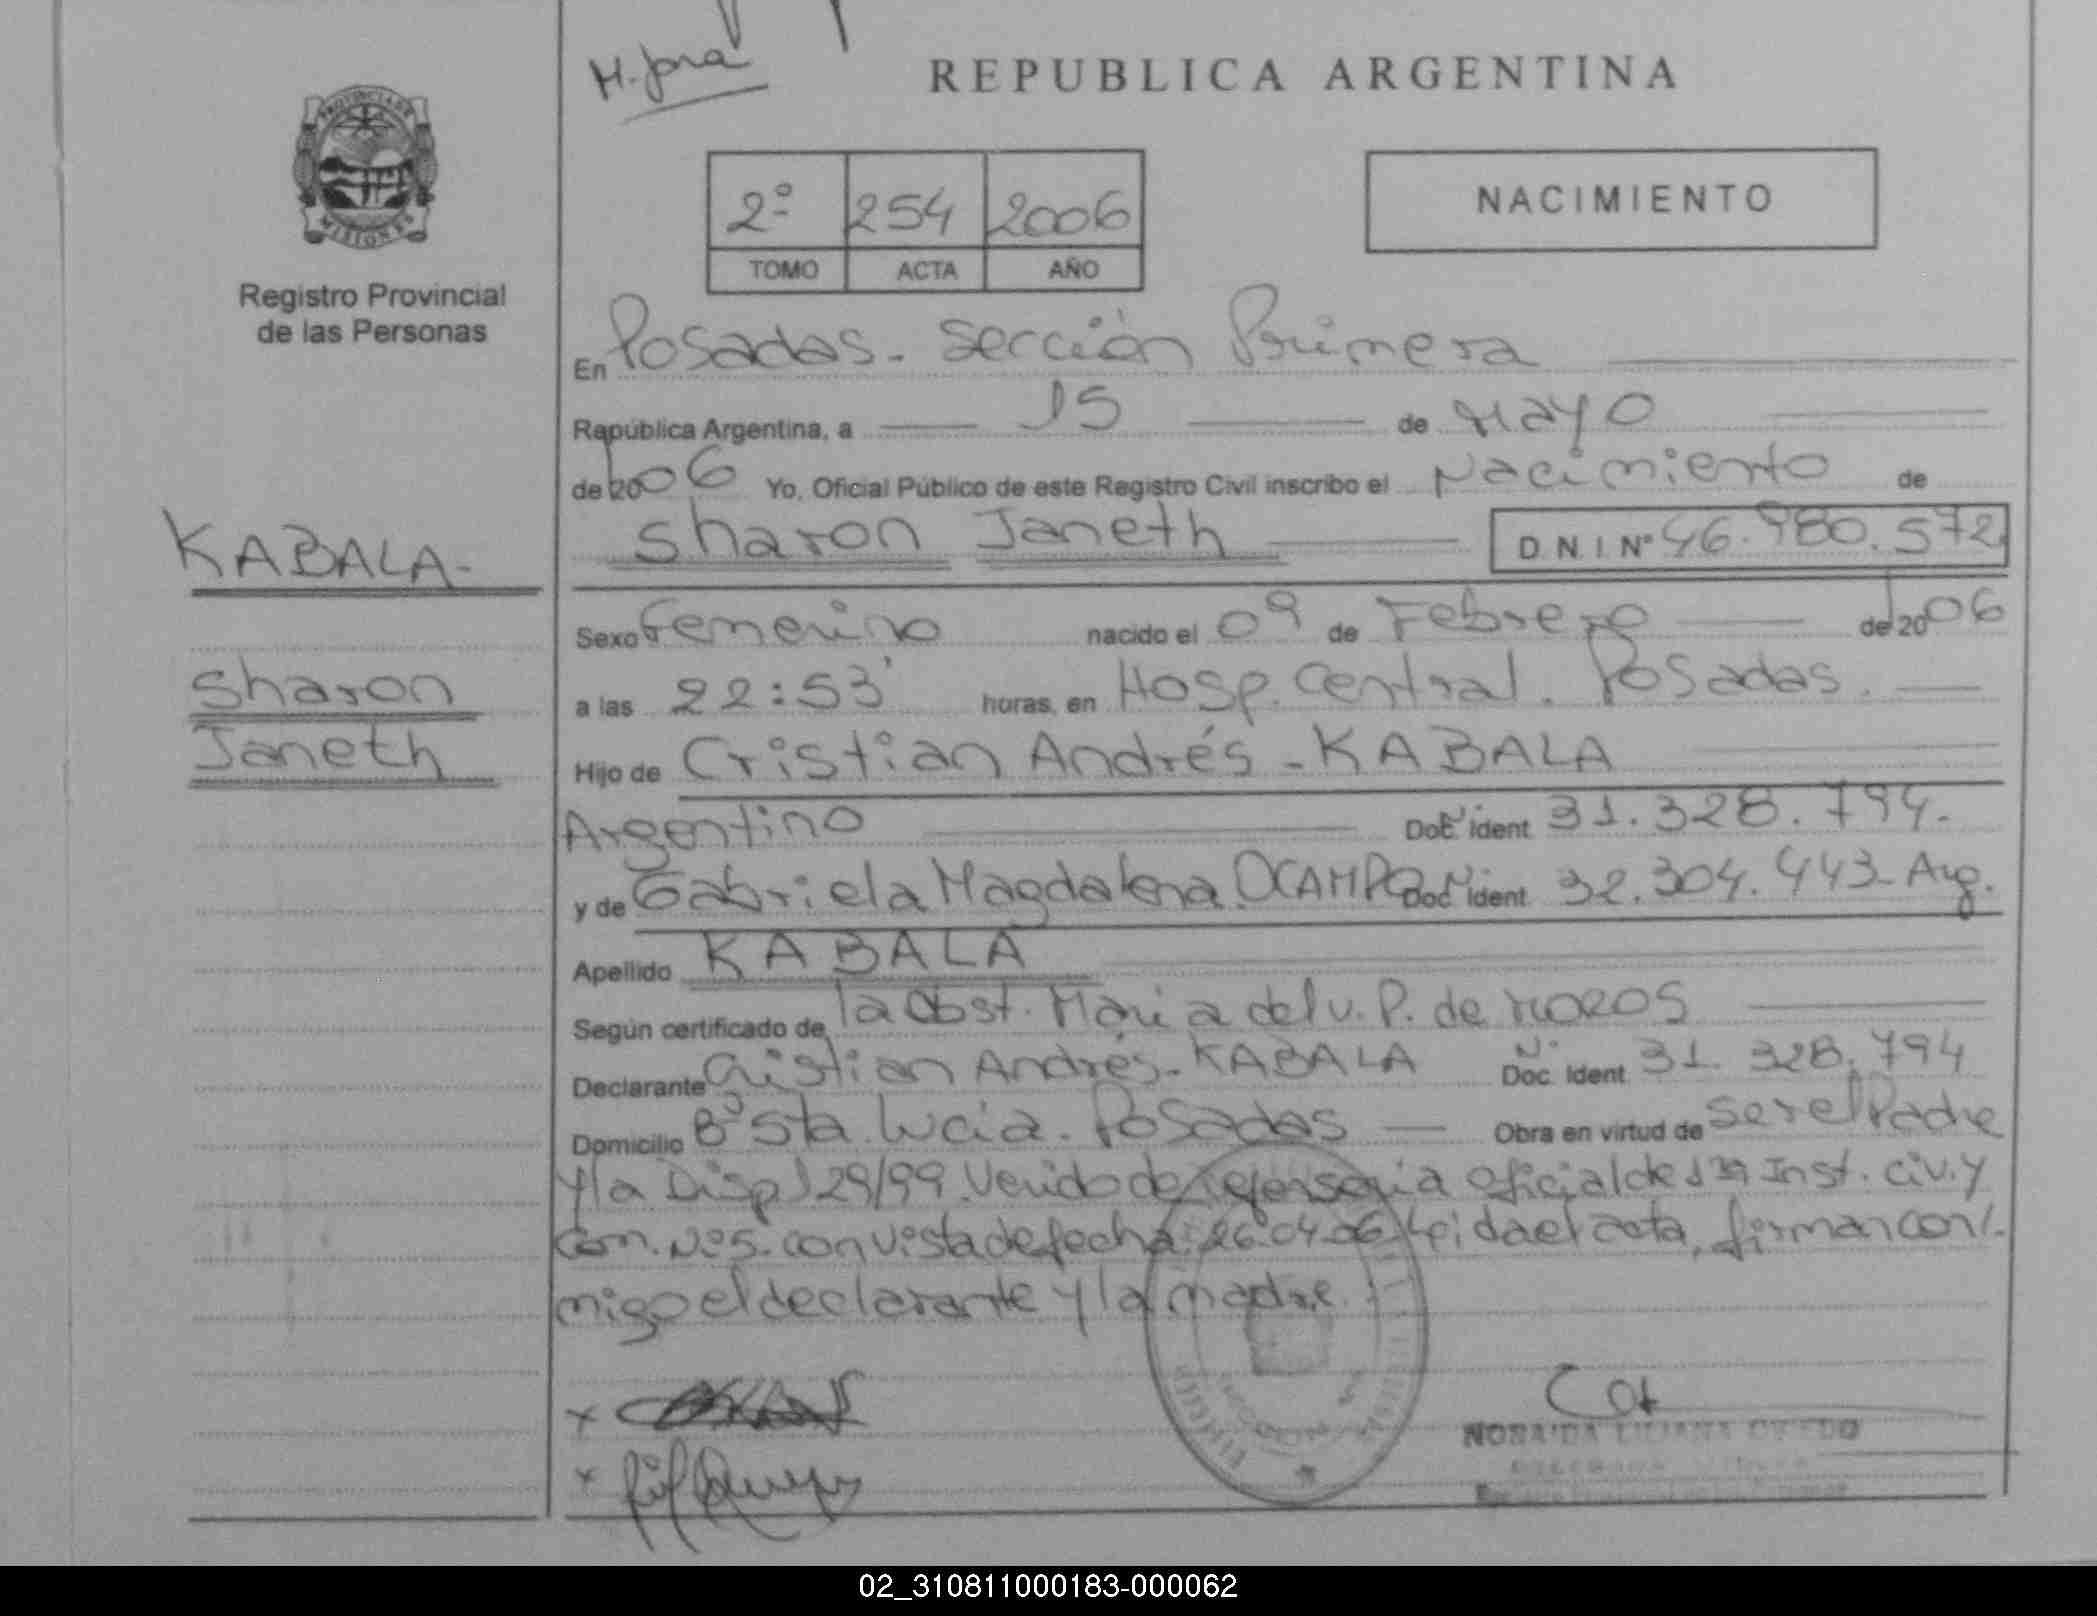 H. Jona
REPUBLICA ARGENTINA
PROVINCIA DE
MISIONES
Registro Provincial
de las Personas
2º 254 2006
TOMO ACTA AÑO
NACIMIENTO
En Posadas - Sección Primera
República Argentina, a 15 de Mayo
de 2006 Yo, Oficial Público de este Registro Civil inscribo el Nacimiento de
KABALA-
Sharon Janeth D.N.I Nº 46.980.572
Sexo Femenino nacido el 09 de Febrero de 2006
Sharon
a las 22:53' horas, en Hosp. Central. Posadas.
Janeth
Hijo de Cristian Andrés - KABALA
Argentino Doc. Nº ident 31.328.794.
y de Gabriela Magdalena OCAMPO Doc. Nº ident 32.304.443- Arg.
Apellido KABALA
Según certificado de la Obst. Maria del v. P. de MOROS
Declarante Cristian Andrés - KABALA Nº Doc. Ident 31.328.794
Domicilio Bº Sta. Lucia. Posadas Obra en virtud de ser el Padre
y la Disp. 29/99. Venido de Defensoria oficial de 1ra Inst. Civ. y
Com. Nº 5. con vista de fecha: 26.04.06. Leida el acta, firman con/-
migo el declarante y la madre.
x
x
NORAIDA LILIANA OVIEDO
02_310811000183-000062